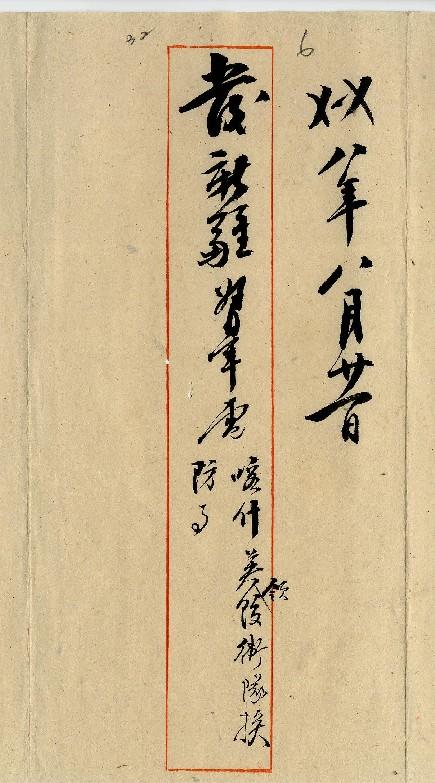 6
八年八月廿一日
發新疆督軍電
喀什英領館衛隊換
防事